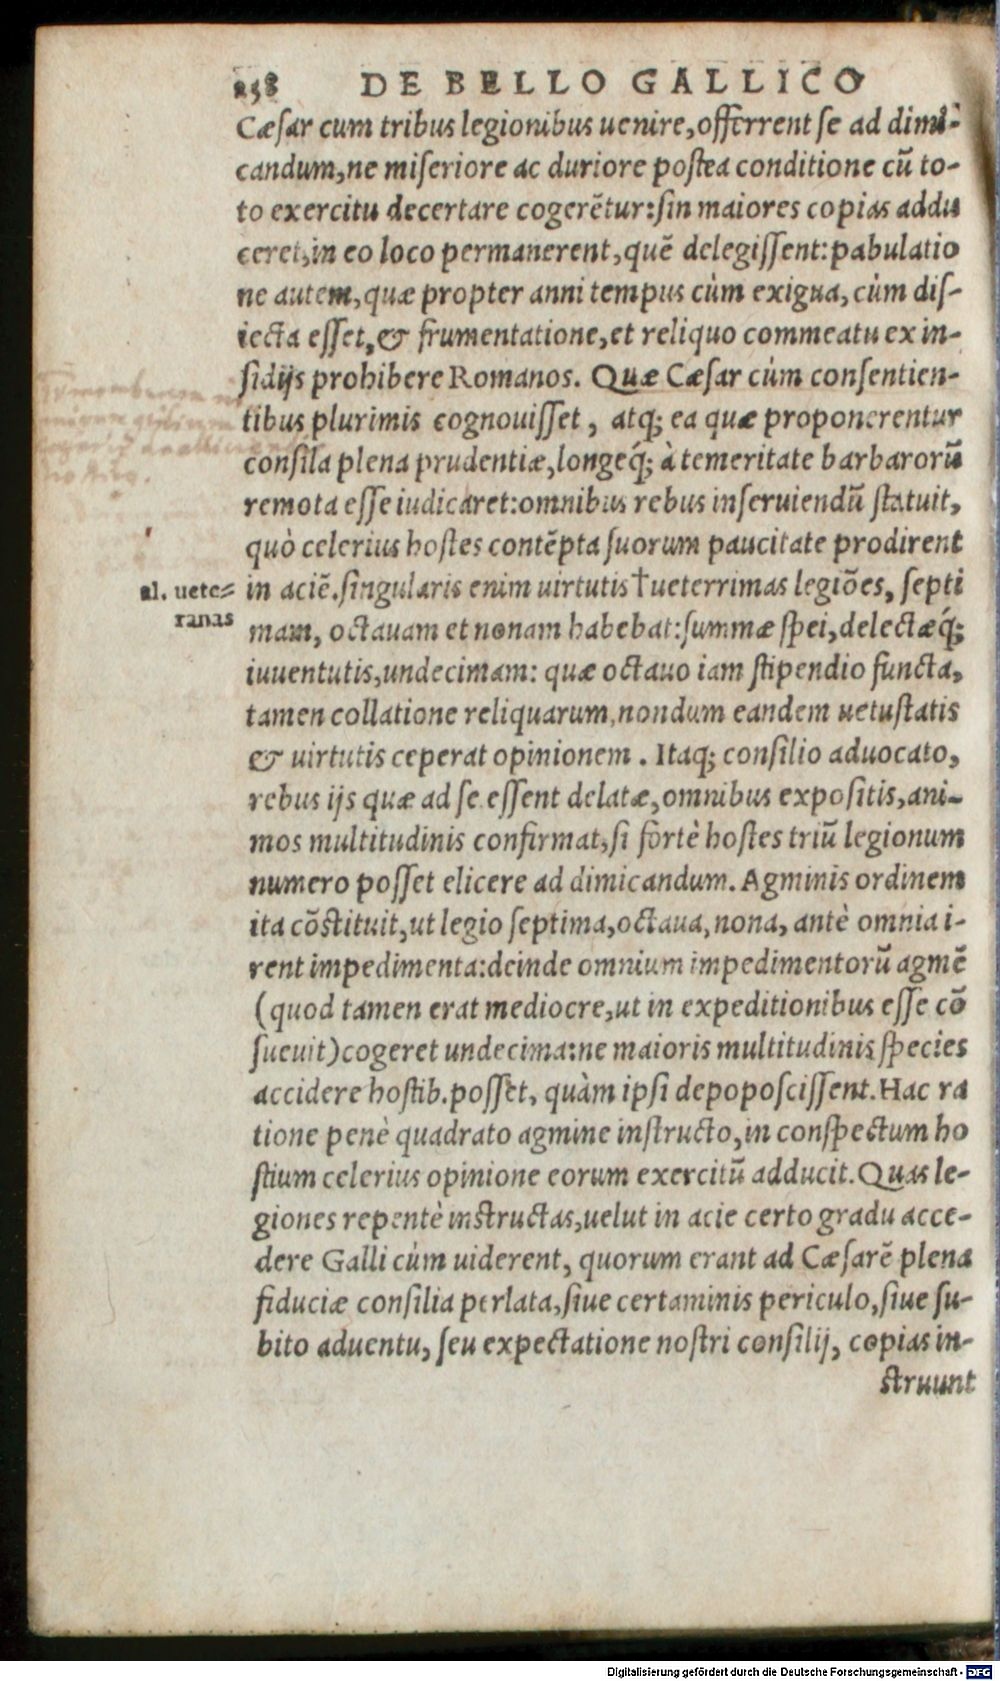 258 DE BELLO GALLICO
Cæſar cum tribus legionibus uenire, offerrent ſe ad dimi-
candum, ne miſeriore ac duriore poſtea conditione cũ to-
to exercitu decertare cogerẽtur: ſin maiores copias addu
ceret, in eo loco permanerent, quẽ delegiſſent: pabulatio
ne autem, quæ propter anni tempus cùm exigua, cùm diſ-
iecta eſſet, & frumentatione, et reliquo commeatu ex in-
ſidijs prohibere Romanos. Quæ Cæſar cùm conſentien-
tibus plurimis cognouiſſet, atq; ea quæ proponerentur
conſila plena prudentiæ, longeq́; à temeritate barbarorũ
remota eſſe iudicaret: omnibus rebus inſeruiendũ ſtatuit,
quò celerius hoſtes contẽpta ſuorum paucitate prodirent
al. uete= in aciẽ. ſingularis enim uirtutis † ueterrimas legiões, ſepti
ranas mam, octauam et nonam habebat: ſummæ ſpei, delectæq́;
iuuentutis, undecimam: quæ octauo iam ſtipendio functa,
tamen collatione reliquarum, nondum eandem uetuſtatis
& uirtutis ceperat opinionem. Itaq; conſilio aduocato,
rebus ijs quæ ad ſe eſſent delatæ, omnibus expoſitis, ani-
mos multitudinis confirmat, ſi fortè hoſtes triũ legionum
numero poſſet elicere ad dimicandum. Agminis ordinem
ita cõſtituit, ut legio ſeptima, octaua, nona, antè omnia i-
rent impedimenta: deinde omnium impedimentorũ agmẽ
(quod tamen erat mediocre, ut in expeditionibus eſſe cõ
ſueuit) cogeret undecima: ne maioris multitudinis ſpecies
accidere hoſtib. poſſet, quàm ipſi depopoſciſſent. Hac ra
tione penè quadrato agmine inſtructo, in conſpectum ho
ſtium celerius opinione eorum exercitũ adducit. Quas le-
giones repentè inſtructas, uelut in acie certo gradu acce-
dere Galli cùm uiderent, quorum erant ad Cæſarẽ plena
fiduciæ conſilia perlata, ſiue certaminis periculo, ſiue ſu-
bito aduentu, ſeu expectatione noſtri conſilij, copias in-
ſtruunt
Digitalisierung gefördert durch die Deutsche Forschungsgemeinschaft - DFG